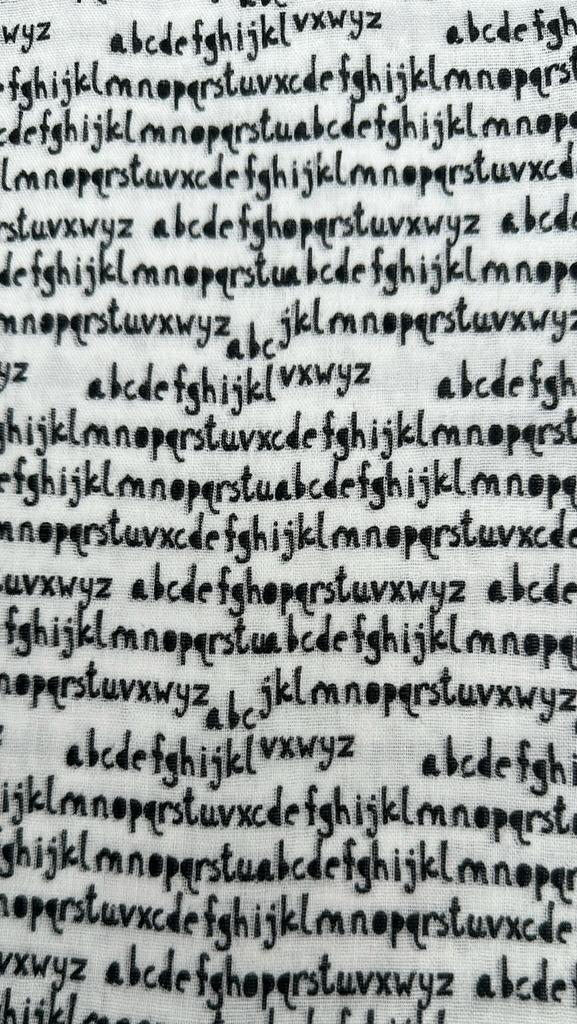 wyz abcdefghijklvxwyz abcdefgh
fghijklmnopqrstuvxcdefghijklmnopqrst
cdefghijklmnopqrstuabcdefghijklmnopq
lmnopqrstuvxcdefghijklmnopqrstuvxcd
rstuvxwyz abcdefghopqrstuvxwyz abcd
defghijklmnopqrstuabcdefghijklmnopq
mnopqrstuvxwyz abc jklmnopqrstuvxwyz
yz abcdefghijklvxwyz abcdefgh
ghijklmnopqrstuvxcdefghijklmnopqrst
efghijklmnopqrstuabcdefghijklmnopq
mnopqrstuvxcdefghijklmnopqrstuvxcde
uvxwyz abcdefghopqrstuvxwyz abcde
fghijklmnopqrstuabcdefghijklmnopq
nopqrstuvxwyz abc jklmnopqrstuvxwyz
abcdefghijklvxwyz abcdefghi
ijklmnopqrstuvxcdefghijklmnopqrst
ghijklmnopqrstuabcdefghijklmnopqr
nopqrstuvxcdefghijklmnopqrstuvxcde
vxwyz abcdefghopqrstuvxwyz abcdef